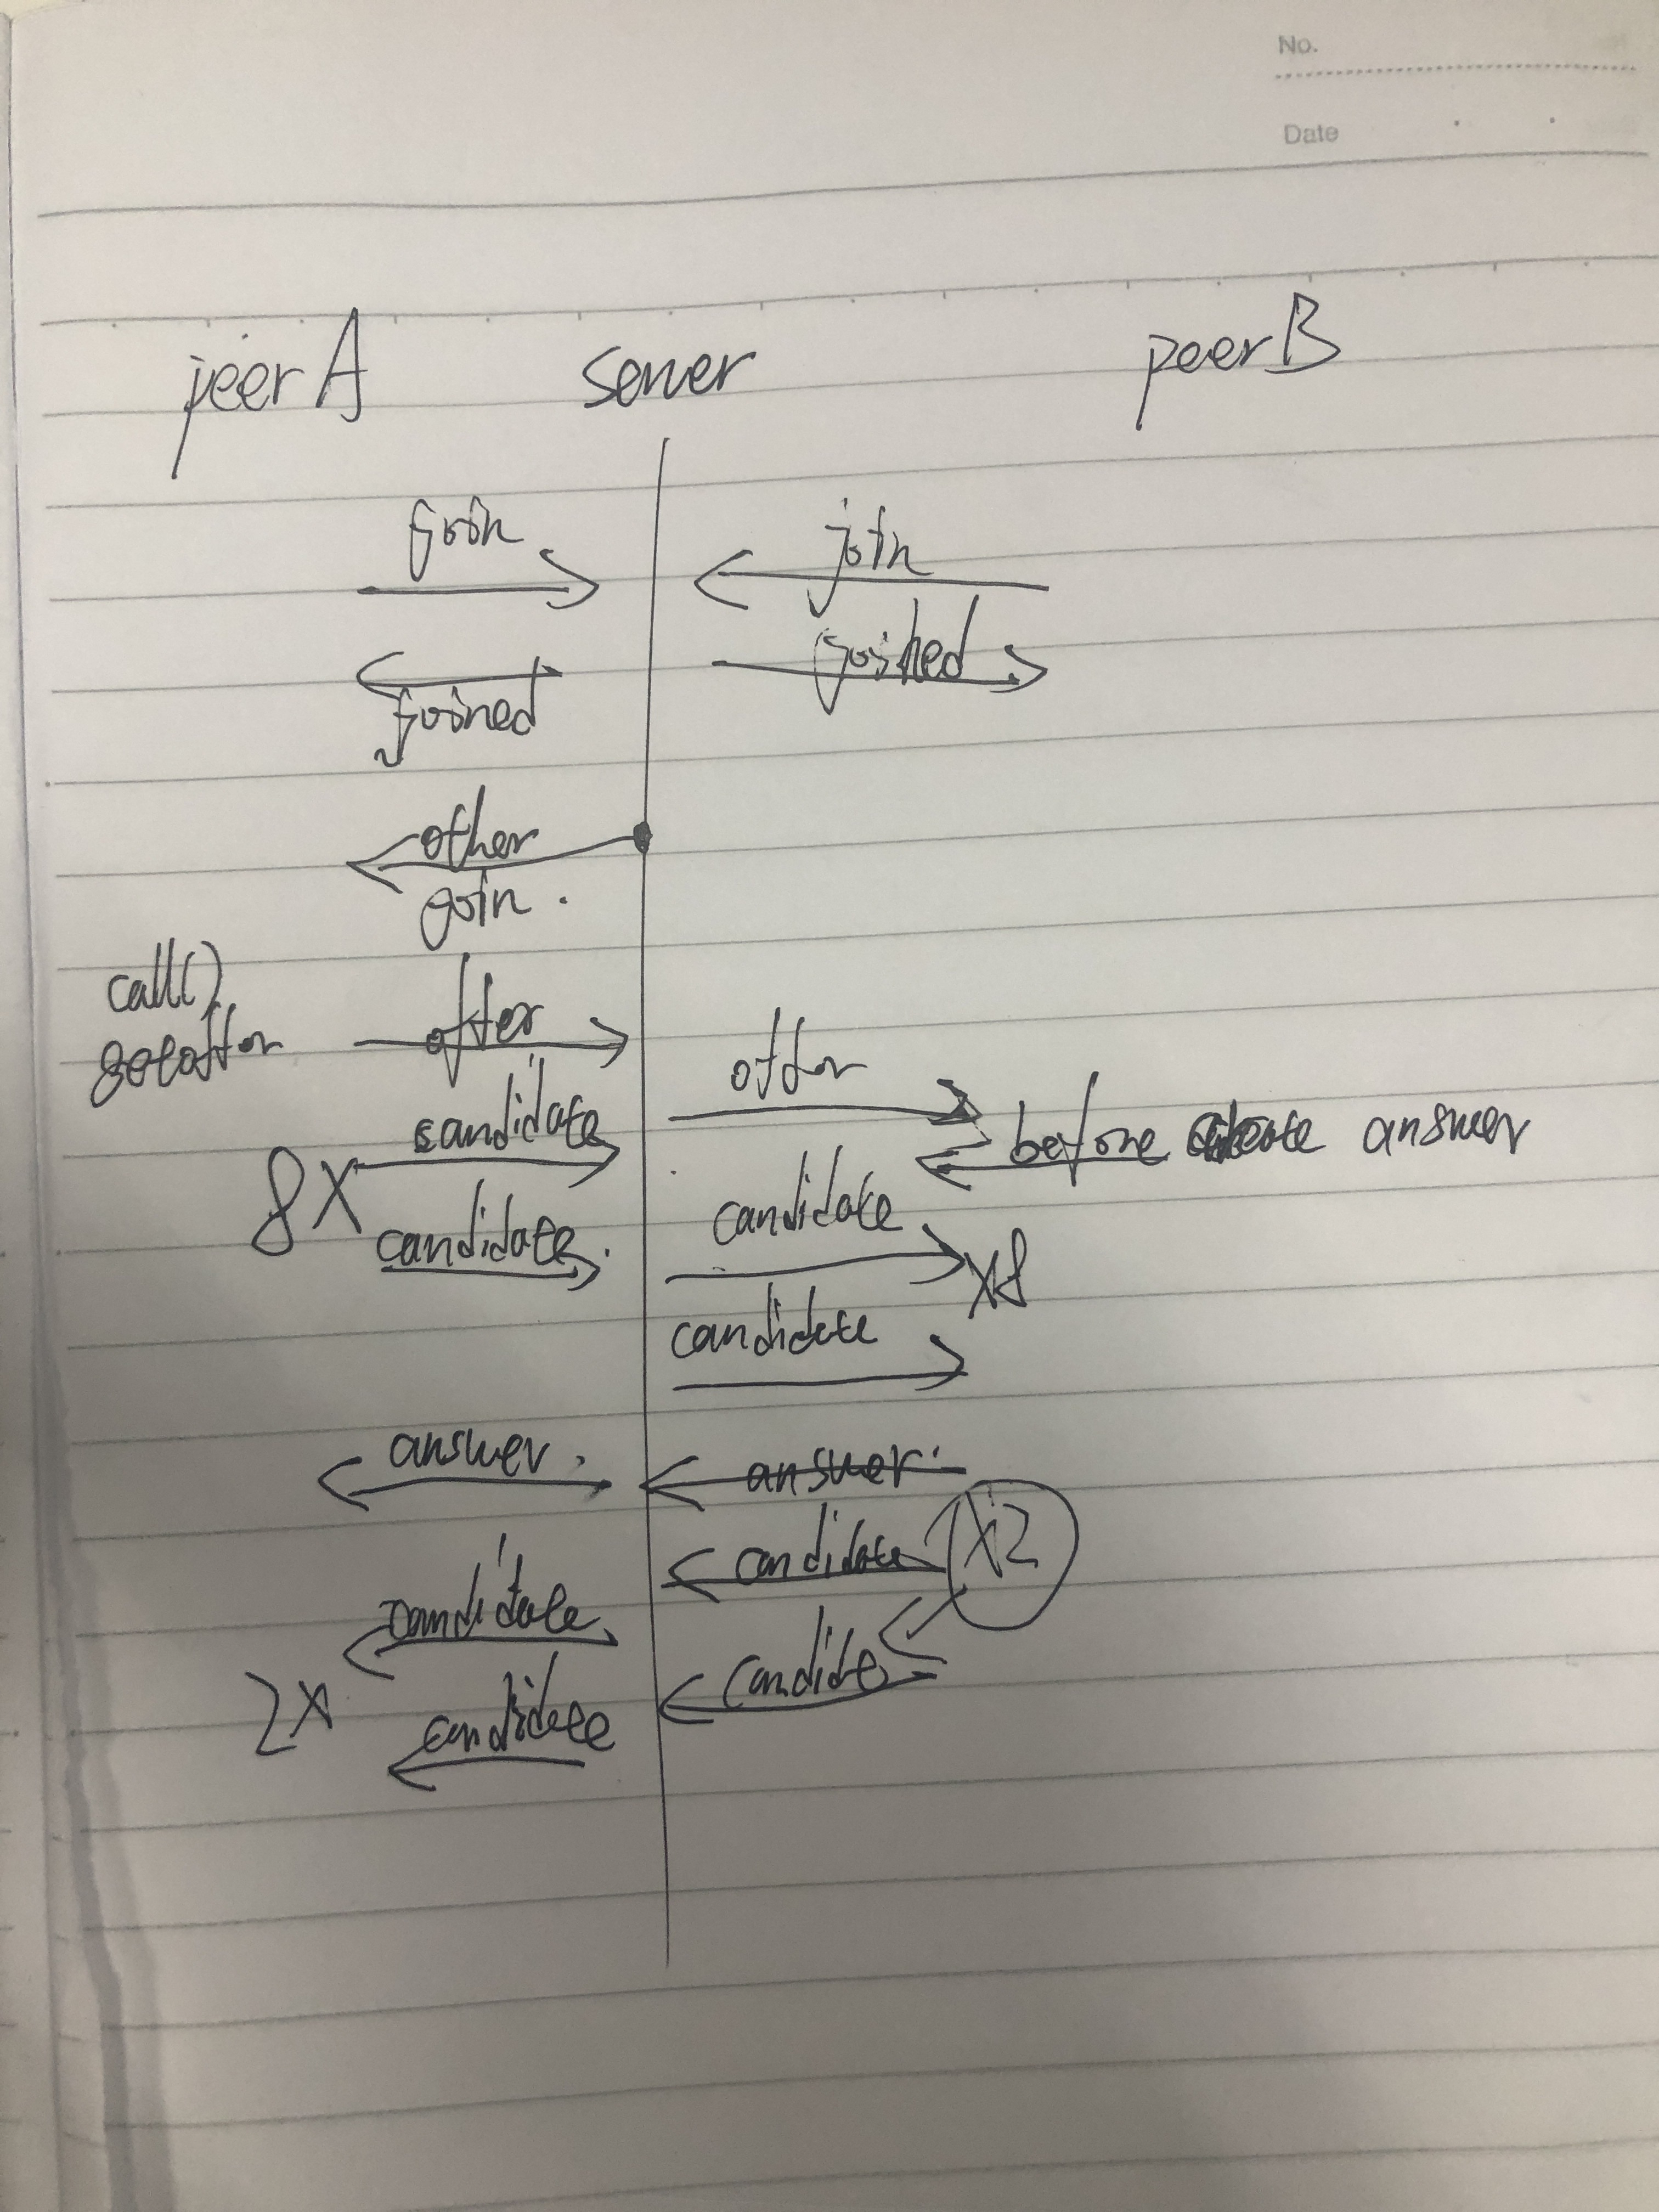 No.
Date
peer A server peer B
join join
joined joined
other
join.
call()
offer
getoffer offer
candidate before create answer
8X
candidate. candidate X8
candidate
answer. answer.
candidate X2
candidate
2x candidate candidte